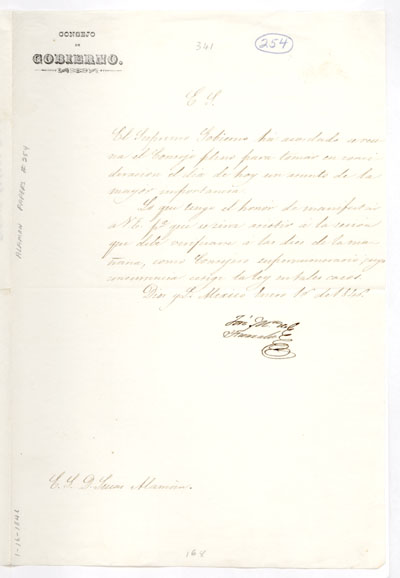 CONCEJO
DE
GOBIERNO.
341
254
E. S.
El Supremo Gobierno ha acordado se reu
na el Consejo pleno para tomar en consi
deracion el dia de hoy un asunto de la
mayor importancia.
Lo que tengo el honor de manifestar
a V.E. pª que se sirva asistir á la sesion
que debe empesar a las dies de la ma
ñana, como Consejero supernumerario cuya
concurrencia exige la ley en tales casos.
Dios y L. Mexico Enero 16 de 1846.
José Mª de
E. S. D. Lucas Alaman.
168
ALAMAN PAPERS # 254
1-16-1846